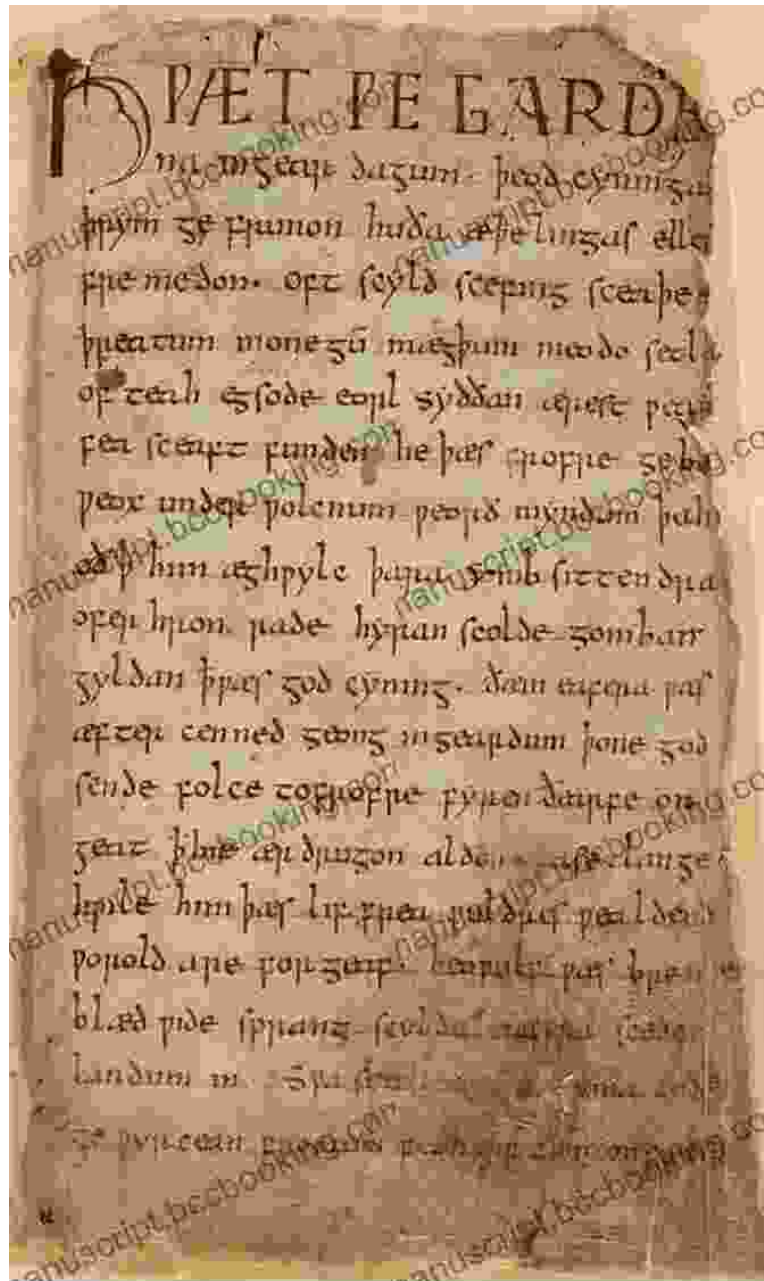 HǷÆT ǷE GARDE
na ingear dagum. þeod cyninga
þrym ge frunon huða æþelingas elle
fre medon. oft scyld scefing sceaþe
þreatum monegū mægþum meodo setla
of teah egsode eorl syððan ærest ƿear
fea sceaft funden he þæs frofre geba
ƿeox under ƿolcnum ƿeorð myndum þah
oð ꝥ him æghƿylc þara ymb sittendra
ofer hron rade hyran scolde gomban
gyldan ꝥ ƿæs god cyning. ðæm eafera ƿæs
æfter cenned geong ingeardum þone god
sende folce tofrofre fyren ðearfe on
geat ꝥ hie ær drugon aldor ase lange
hƿile him þæs lif frea ƿuldres ƿealdend
ƿorold are for geaf. beoƿulf ƿæs breme
blæd ƿide sprang scyldes eafera scede
landum in. Sƿa
ge ƿyrcean fromum
manuscript.bccbooking.com